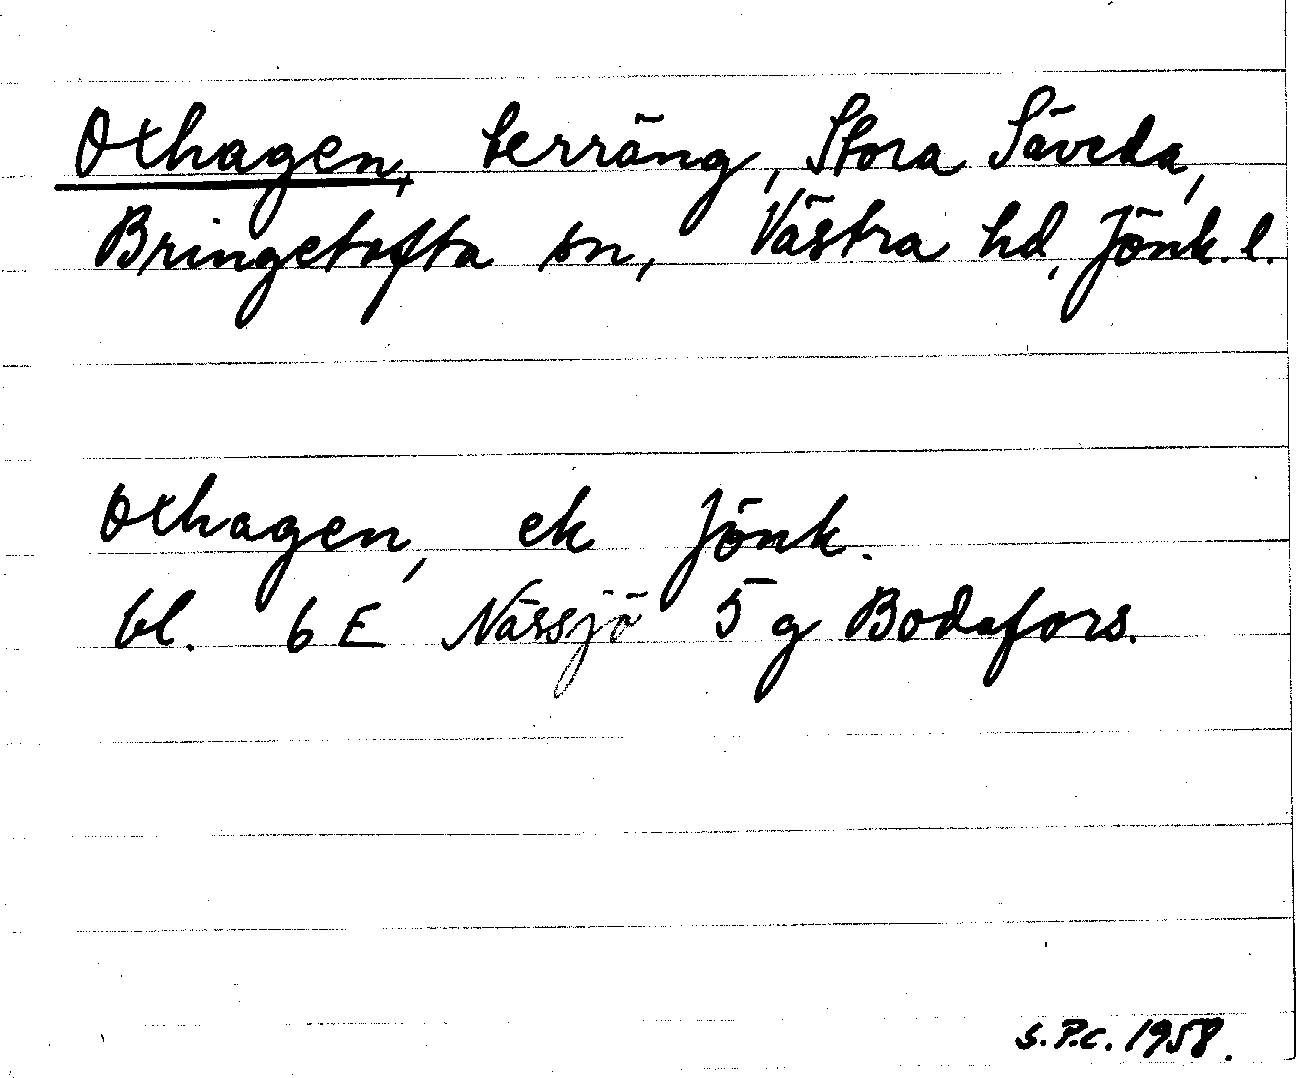 Oxhagen, terräng, Stora Säveda,
Bringetofta sn, Västra hd, Jönk. l.
Oxhagen, ek Jönk.
bl. 6 E Nässjö 5 g Bodafors.
S.P.C. 1958.